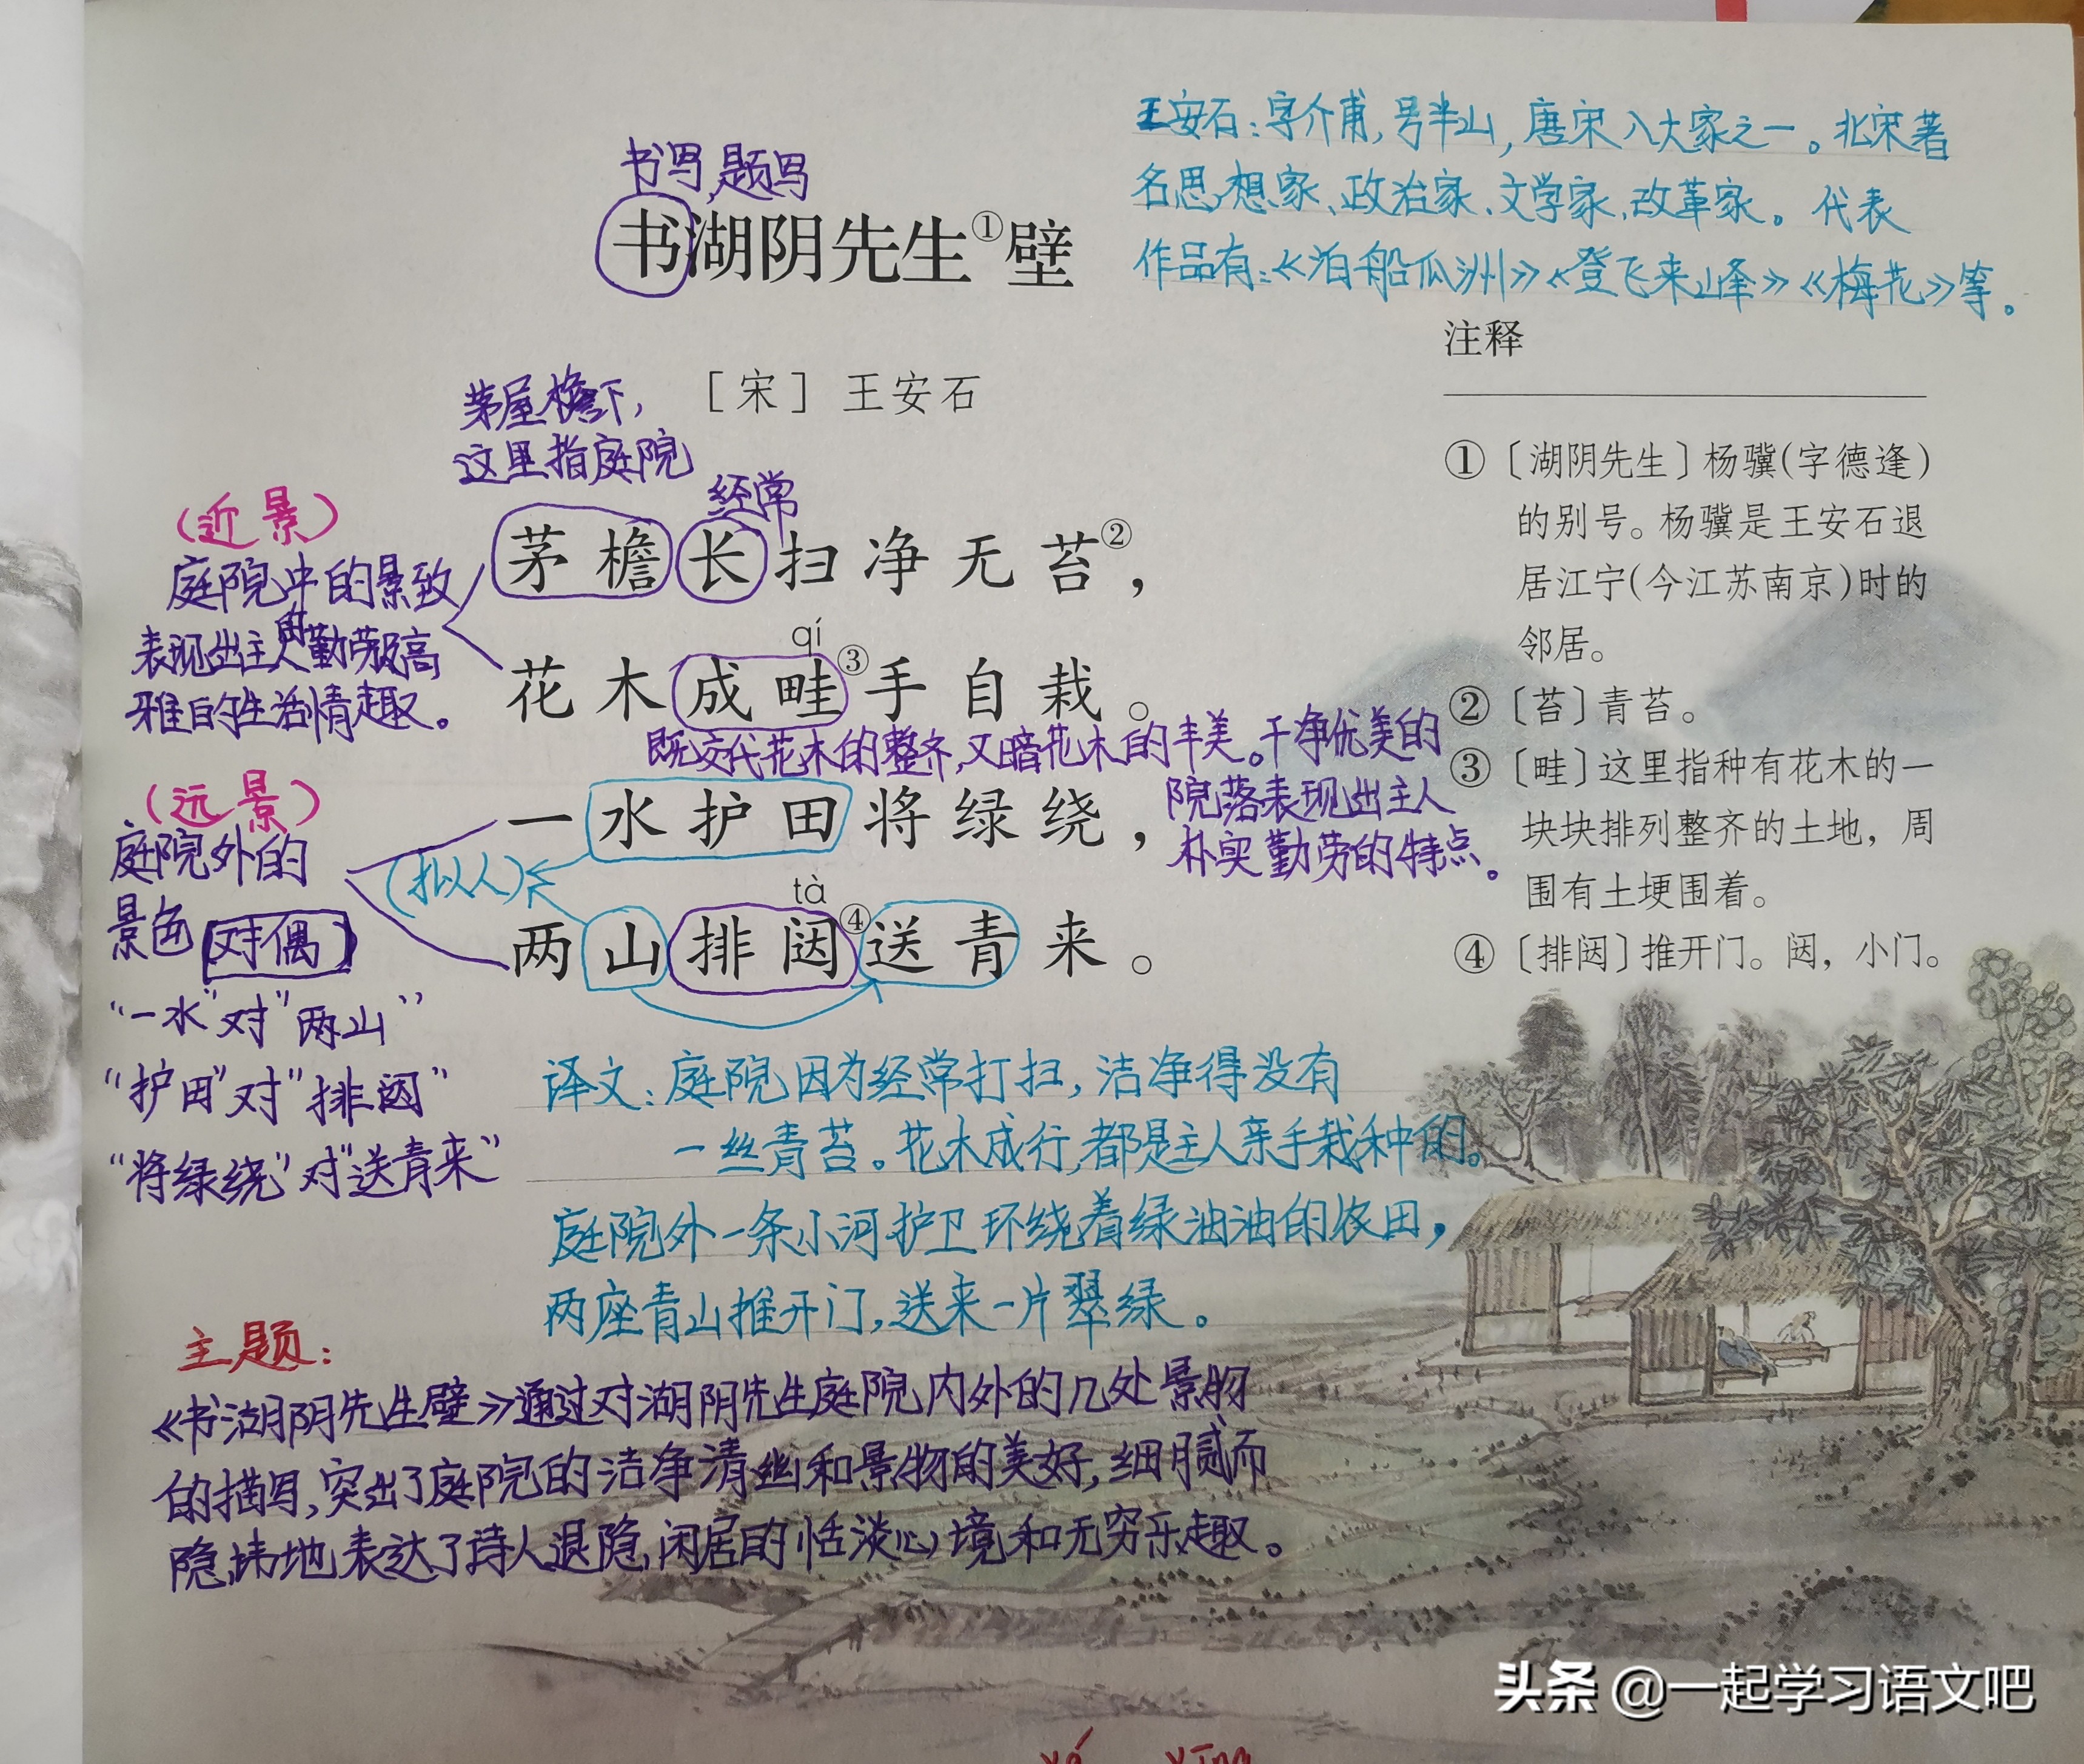 王安石：字介甫，号半山，唐宋八大家之一。北宋著
名思想家、政治家、文学家、改革家。代表
作品有：《泊船瓜洲》《登飞来峰》《梅花》等。
书写，题写
书湖阴先生①壁
［宋］王安石
茅屋檐下，
这里指庭院
经常
茅檐长扫净无苔②，
qí
花木成畦③手自栽。
既交代花木的整齐，又暗花木的丰美。干净优美的
院落表现出主人
朴实勤劳的特点。
一水护田将绿绕，
（拟人）
tà
两山排闼④送青来。
（近景）
庭院中的景致
表现出主人的勤劳及高
雅的生活情趣。
（远景）
庭院外的
景色（对偶）
“一水”对“两山”
“护田”对“排闼”
“将绿绕”对“送青来”
注释
①〔湖阴先生〕杨骥(字德逢)
的别号。杨骥是王安石退
居江宁(今江苏南京)时的
邻居。
②〔苔〕青苔。
③〔畦〕这里指种有花木的一
块块排列整齐的土地，周
围有土埂围着。
④〔排闼〕推开门。闼，小门。
译文：庭院因为经常打扫，洁净得没有
一丝青苔。花木成行，都是主人亲手栽种的。
庭院外一条小河护卫环绕着绿油油的农田，
两座青山推开门，送来一片翠绿。
主题：
《书湖阴先生壁》通过对湖阴先生庭院内外的几处景物
的描写，突出了庭院的洁净清幽和景物的美好，细腻而
隐地表达了诗人退隐闲居的恬淡心境和无穷乐趣。
头条 @一起学习语文吧